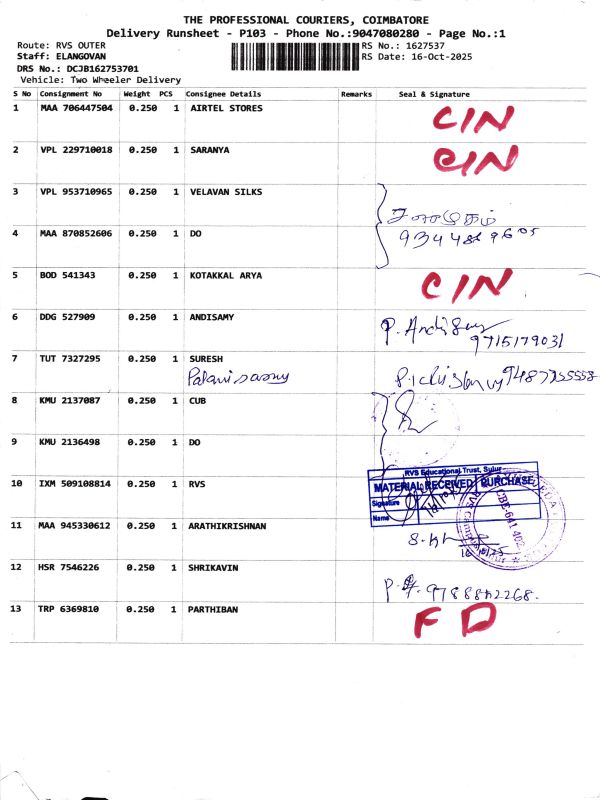 THE PROFESSIONAL COURIERS, COIMBATORE
Delivery Runsheet - P103 - Phone No.:9047080280 - Page No.:1
Route: RVS OUTER
RS No.: 1627537
Staff: ELANGOVAN
RS Date: 16-Oct-2025
DRS No.: DCJB162753701
Vehicle: Two Wheeler Delivery
S No Consignment No Weight PCS Consignee Details Remarks Seal & Signature
1 MAA 706447504 0.250 1 AIRTEL STORES C/N
2 VPL 229710018 0.250 1 SARANYA C/N
3 VPL 953710965 0.250 1 VELAVAN SILKS
4 MAA 870852606 0.250 1 DO
5 BOD 541343 0.250 1 KOTAKKAL ARYA C/N
6 DDG 527909 0.250 1 ANDISAMY
9715179031
7 TUT 7327295 0.250 1 SURESH
Palanisamy
8 KMU 2137087 0.250 1 CUB
9 KMU 2136498 0.250 1 DO
RVS Educational Trust, Sulur
MATERIAL RECEIVED PURCHASE
10 IXM 509108814 0.250 1 RVS
Signature
Name
CBE-641 402
11 MAA 945330612 0.250 1 ARATHIKRISHNAN
12 HSR 7546226 0.250 1 SHRIKAVIN
13 TRP 6369810 0.250 1 PARTHIBAN F D